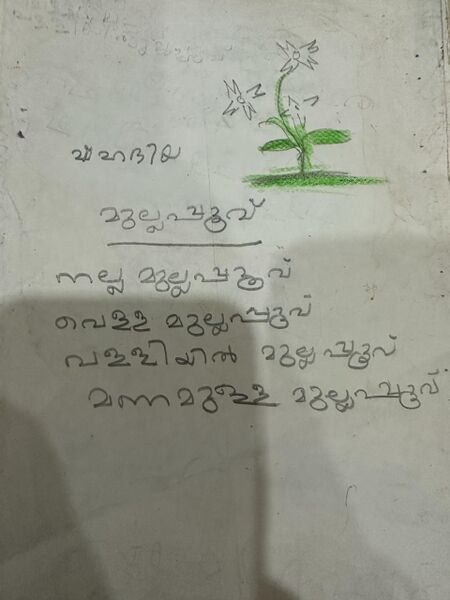 ഹാദിയ
മുല്ലപ്പൂവ്
നല്ല മുല്ലപ്പൂവ്
വെള്ള മുല്ലപ്പൂവ്
വള്ളിയിൽ മുല്ലപ്പൂവ്
മണമുള്ള മുല്ലപ്പൂവ്